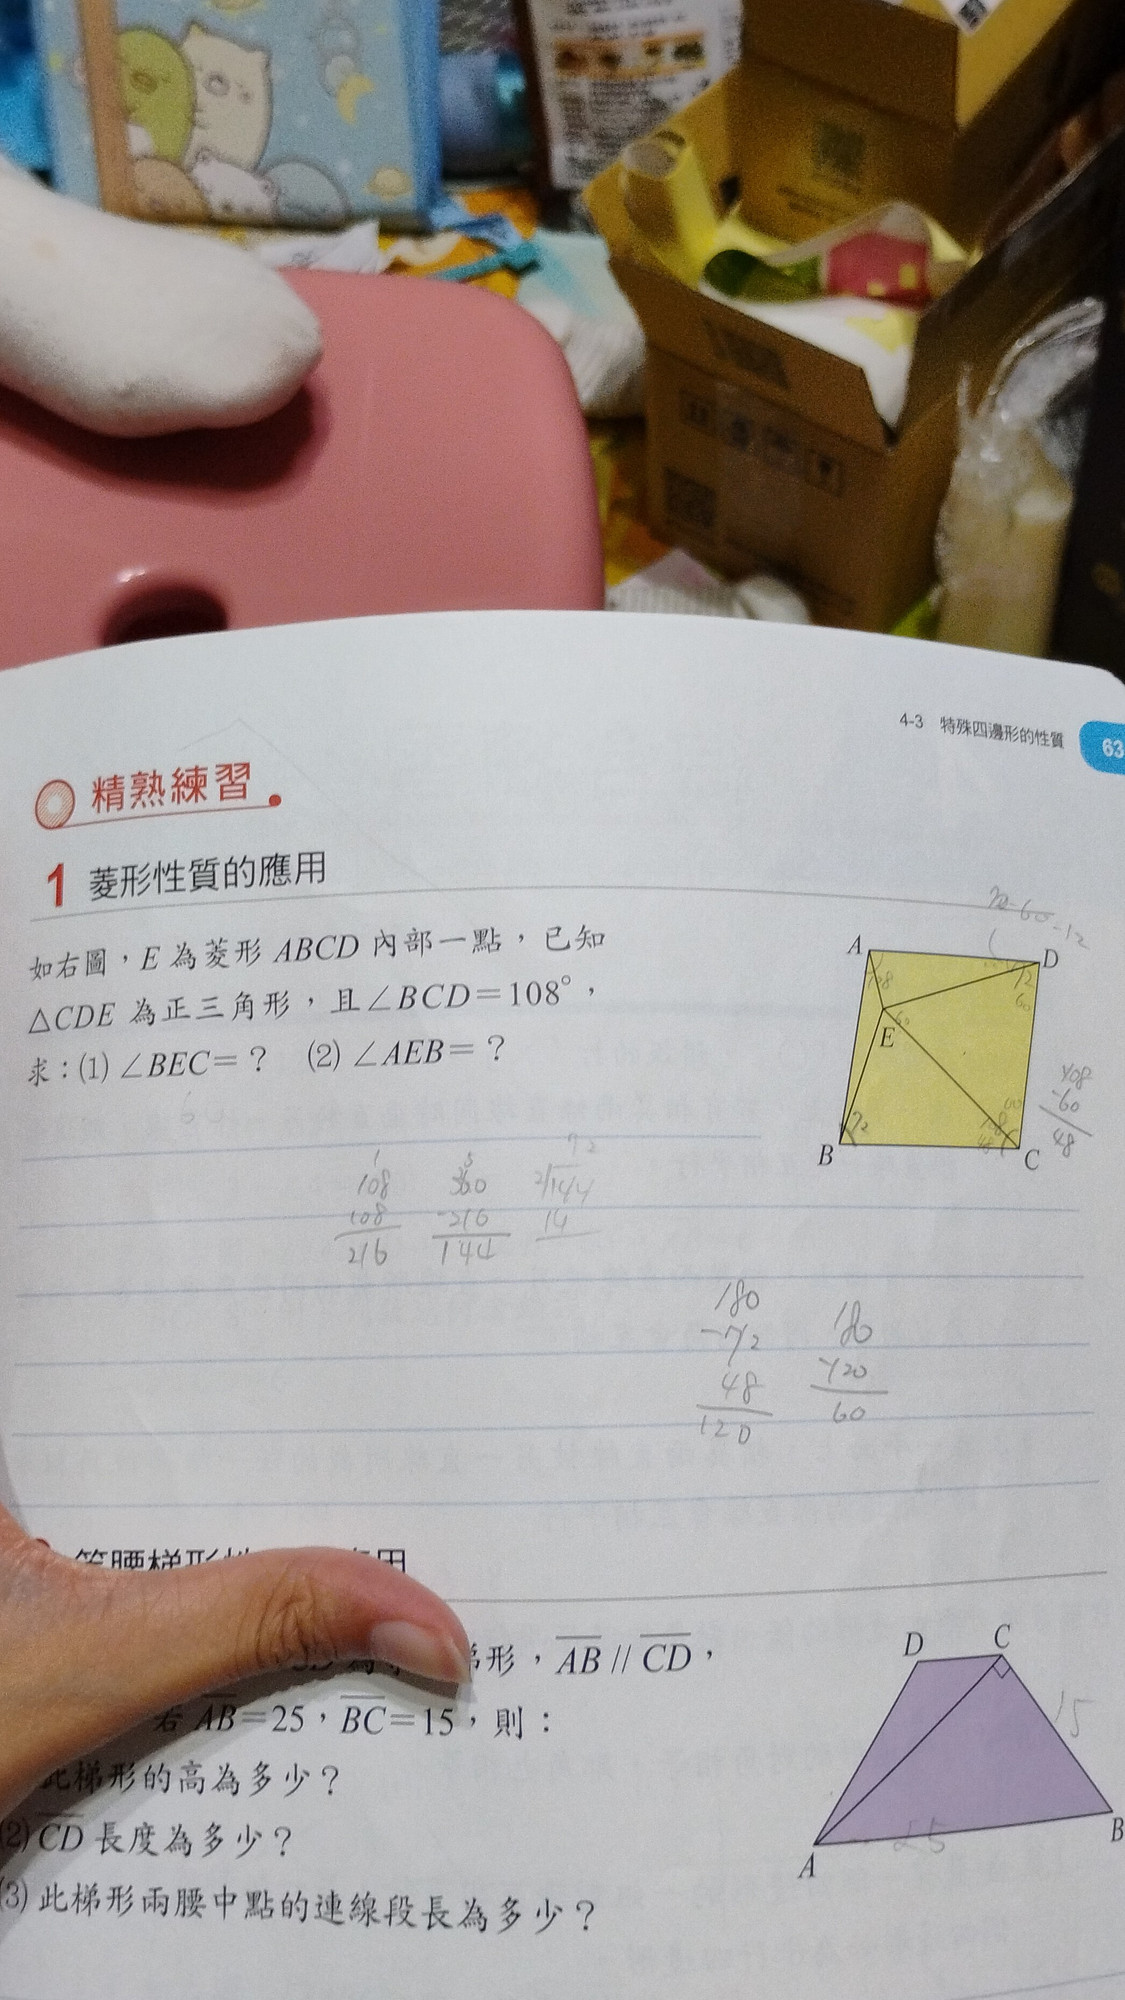 4-3 特殊四邊形的性質
63
精熟練習
1 菱形性質的應用
如右圖，E 為菱形 ABCD 內部一點，已知
△CDE 為正三角形，且∠BCD=108°，
求：(1) ∠BEC=？ (2) ∠AEB=？
A
D
E
B
C
108
-60
48
108
108
216
360
-216
144
72
2/144
14
180
-72
48
120
180
120
60
梯形，AB // CD，
若 AB=25，BC=15，則：
此梯形的高為多少？
(2) CD 長度為多少？
(3) 此梯形兩腰中點的連線段長為多少？
D
C
15
25
A
B